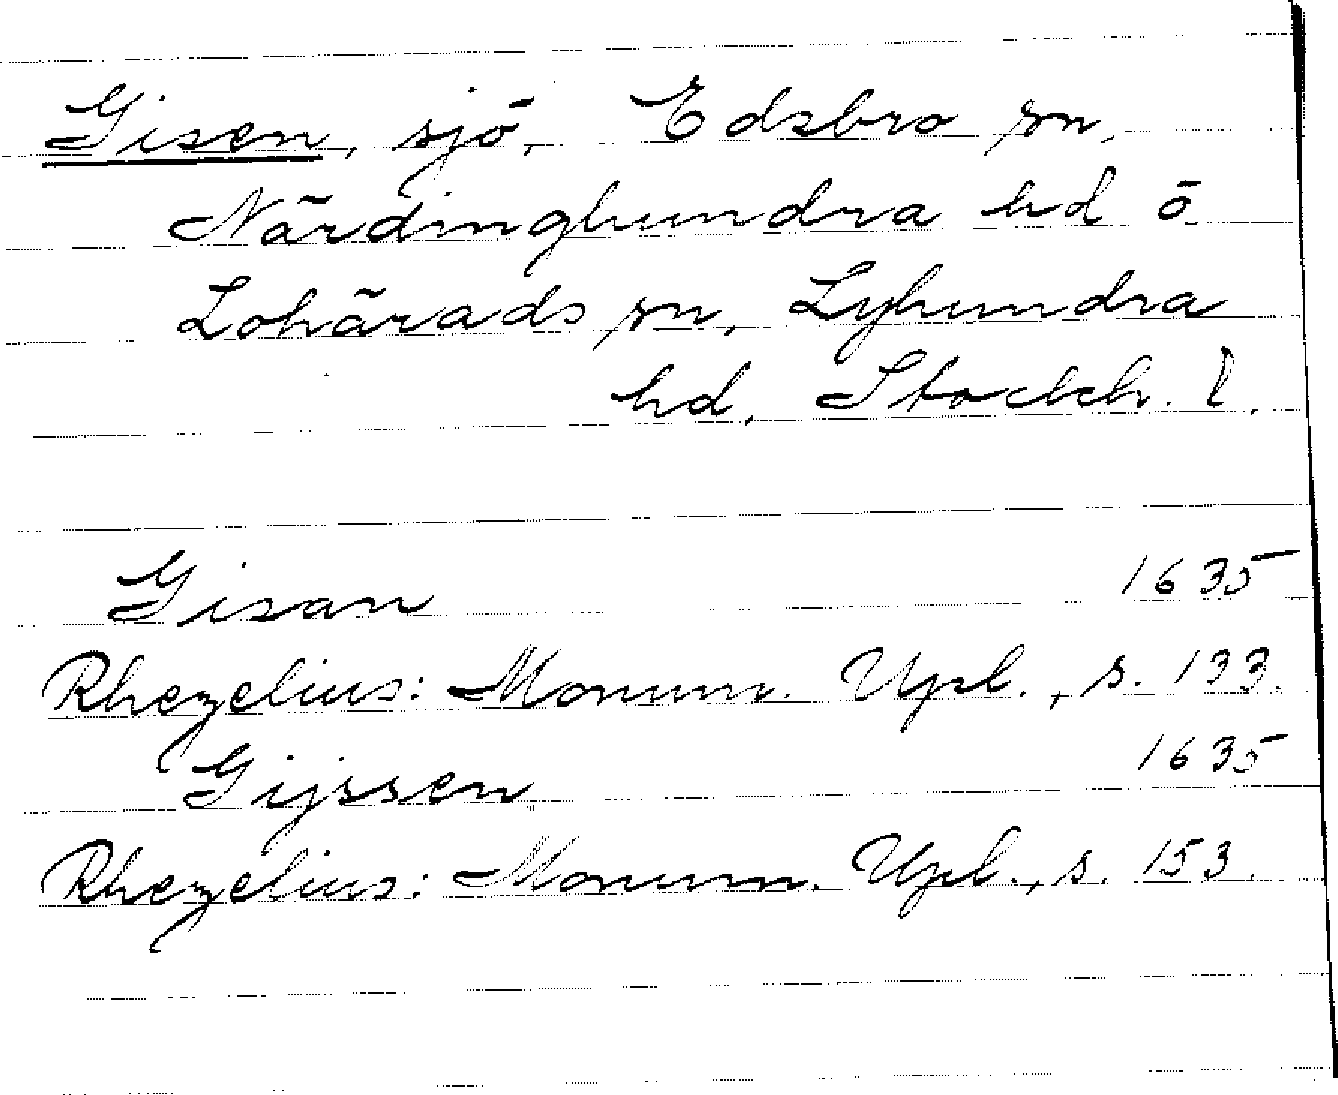 Gisen, sjö, Edsbro sn,
Närdinghundra hd o.
Lohärads sn, Lyhundra
hd, Stockh. l.
Gisan 1635
Rhezelius: Monum. Upl., s. 133.
Gijssen 1635
Rhezelius: Monum. Upl., s. 153.